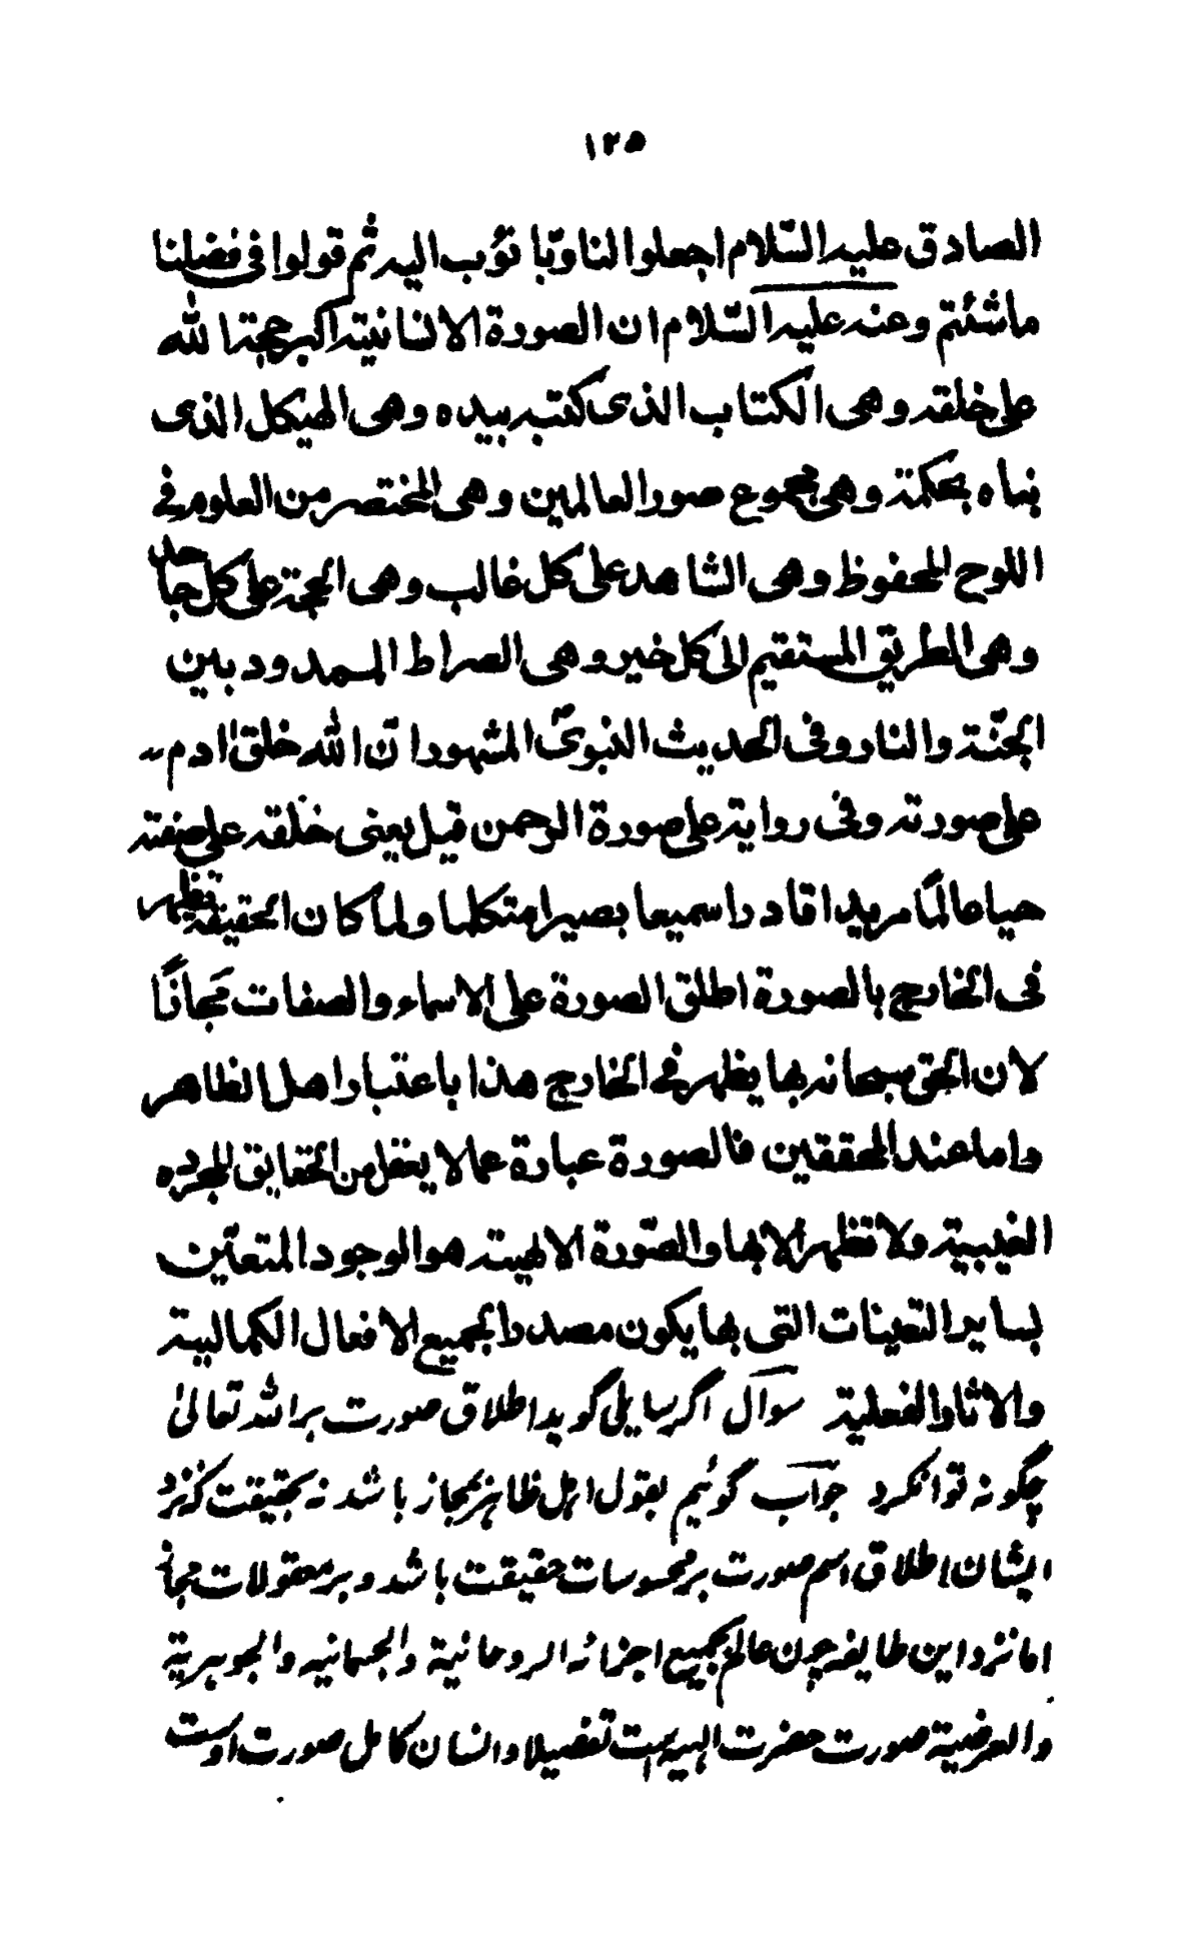 ١٢٥
الصادق عليه السّلام اجعلوا لنا وبّا نؤب اليه ثم قولوا فى فضلنا
ماشئتم وعنه عليه السّلام ان الصورة الانسانية اكبر حجة الله
على خلقه وهى الكتاب الذى كتبه بيده وهى الهيكل الذى
بناه بحكمة وهى مجموع صور العالمين وهى المختصر من العلوم فى
اللوح المحفوظ وهى الشاهد على كل غالب وهى الحجة على كل جاحد
وهى الطريق المستقيم الى كل خير وهى الصراط الممدود بين
الجنّة والنار وفى الحديث النبوىّ المشهور انّ الله خلق ادم
على صورته وفى رواية على صورة الرحمن قيل يعنى خلقه على صفته
حيا عالمًا مريدا قادرا سميعا بصيرا متكلما ولما كان الحقيقة تظهر
فى الخارج بالصورة اطلق الصورة على الاسماء والصفات مجانًا
لان الحق سبحانه بها يظهر فى الخارج هذا باعتبار اهل الظاهر
واما عند المحققين فالصورة عبارة عما لا يعقل من الحقايق المجرده
الغيبية ولا تظهر الا بها والصّورة الالهية هو الوجود المتعيّن
بساير التعينات التى بها يكون مصدرا لجميع الافعال الكمالية
والاثار الفعلية سوآل اگر سايلى گويد اطلاق صورت بر الله تعالىٰ
چگونه توانكرد جوآب گوئيم بقول اهل ظاهر بمجاز باشد نه بحقيقت كه نزد
ايشان اطلاق اسم صورت بر محسوسات حقيقت باشد و بر معقولات مجاز
اما نزد اين طايفه چون عالم بجميع اجزائه الروحانية والجسمانيه والجوهرية
والعرضية صورت حضرت الهيه است تفصيلا وانسان كامل صورت اوست